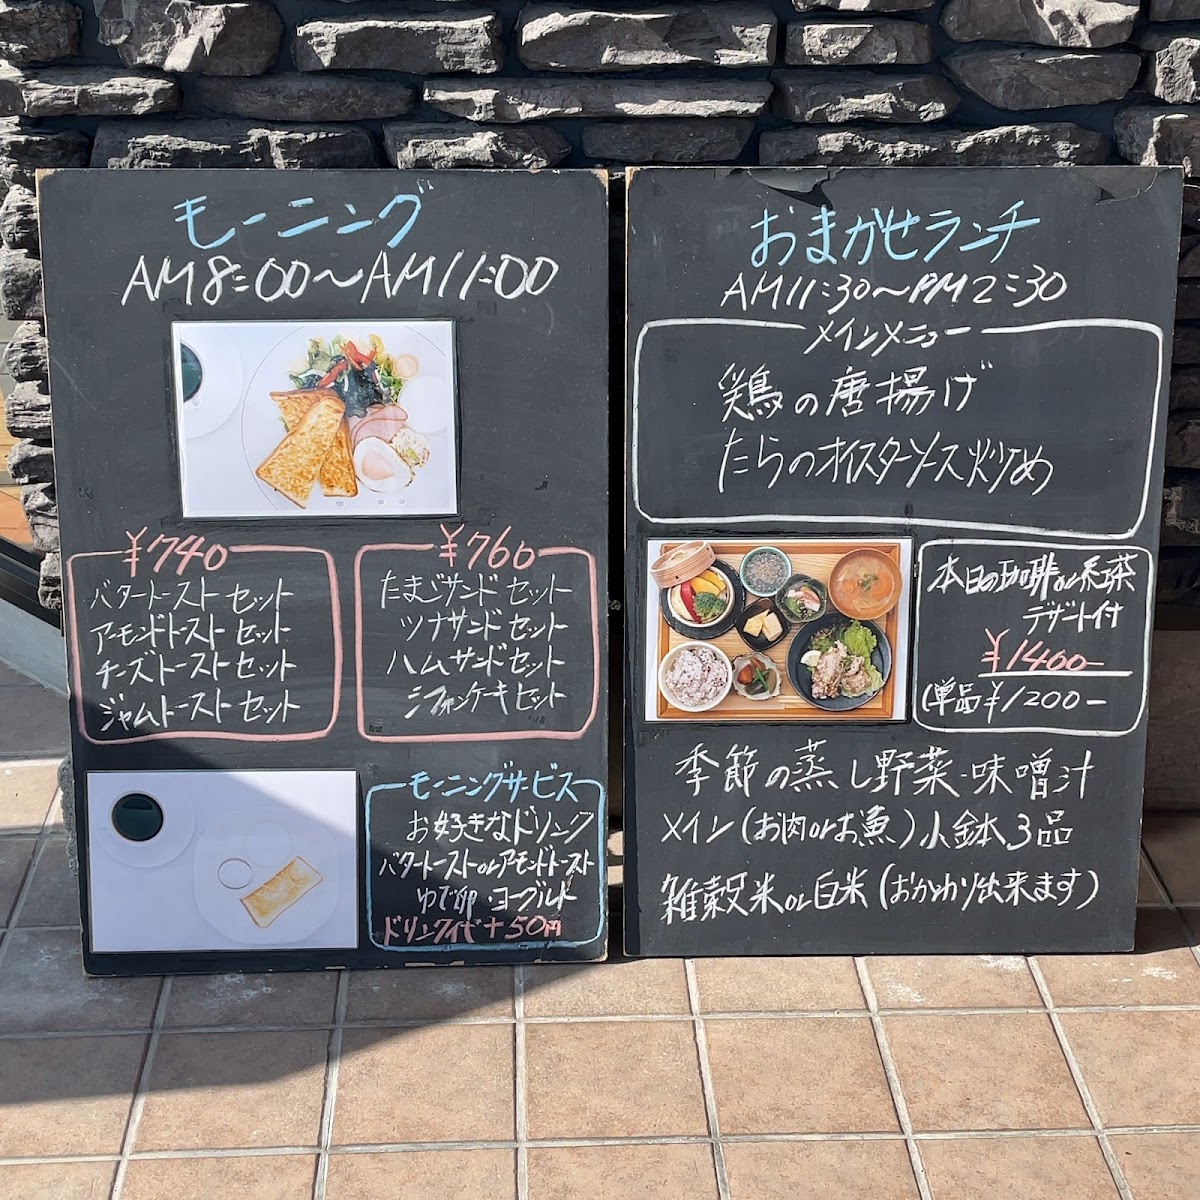 モーニング
AM8:00〜AM11:00
¥740
バタートースト セット
アーモンドトースト セット
チーズトースト セット
ジャムトースト セット
¥760
たまごサンド セット
ツナサンド セット
ハムサンド セット
シフォンケーキ セット
モーニングサービス
お好きなドリンク
バタートーストorアーモンドトースト
ゆで卵・ヨーグルト
ドリンク代+50円
おまかせランチ
AM11:30〜PM2:30
メインメニュー
鶏の唐揚げ
たらのオイスターソース炒め
本日の珈琲or紅茶
デザート付
¥1400-
(単品¥1200-
季節の蒸し野菜・味噌汁
メイン(お肉orお魚)小鉢3品
雑穀米or白米(おかわり出来ます)